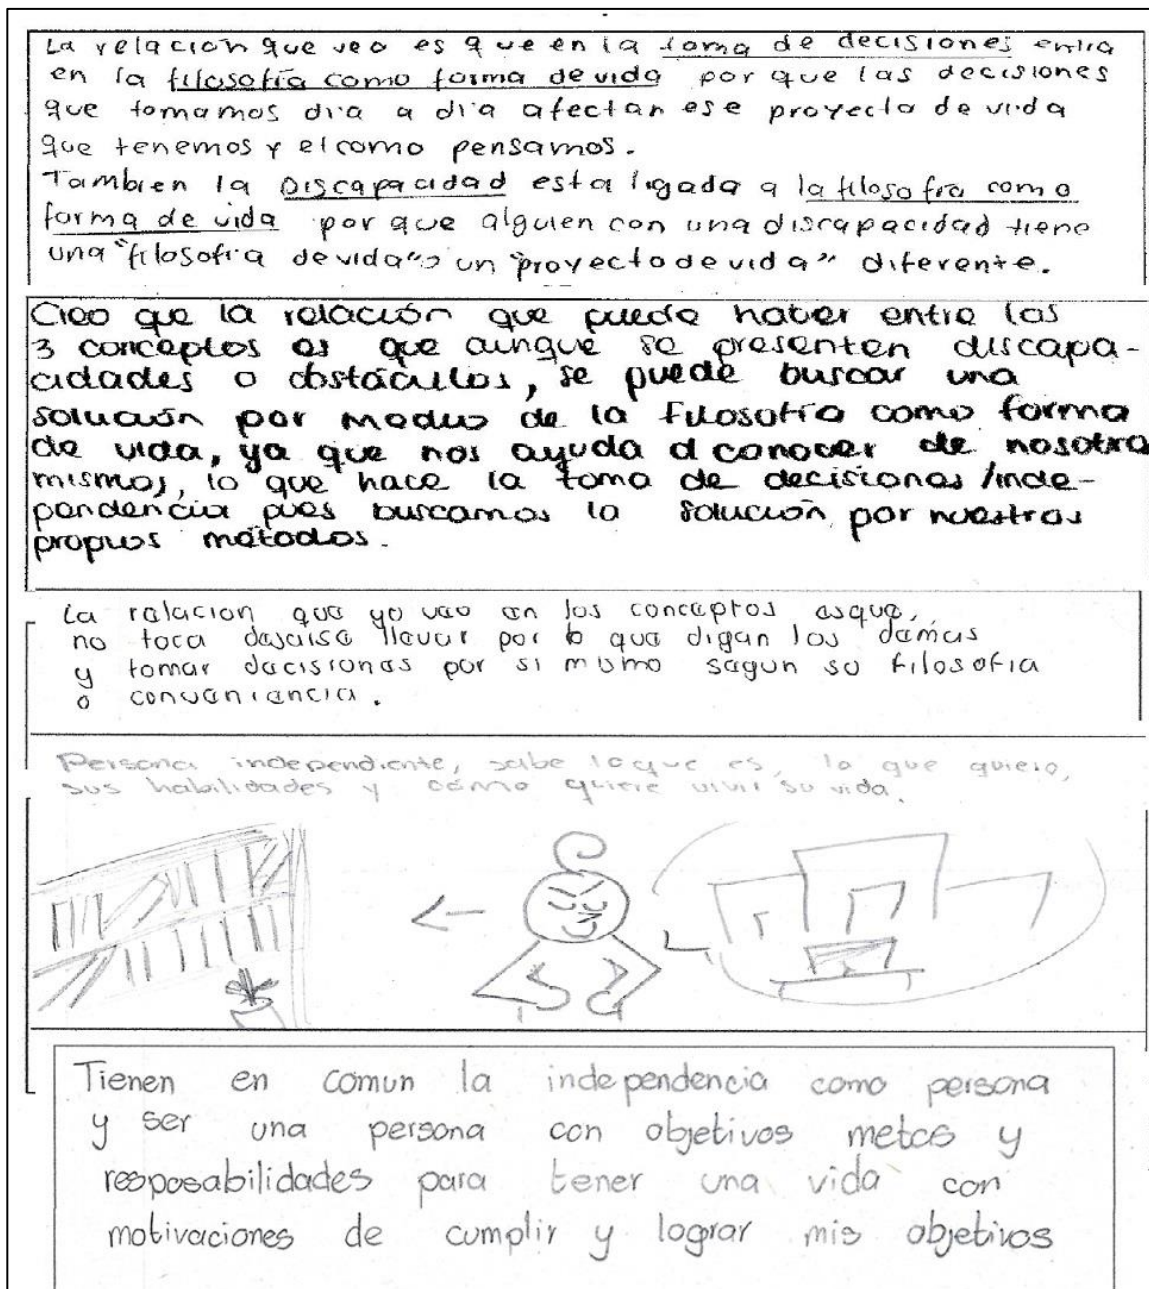 La relación que veo es que en la toma de decisiones entra
en la filosofía como forma de vida por que las decisiones
que tomamos dia a dia afectan ese proyecto de vida
que tenemos y el como pensamos.
Tambien la Discapacidad esta ligada a la filosofia como
forma de vida por que alguien con una discapacidad tiene
una "filosofia de vida" o un "proyecto de vida" diferente.
Creo que la relación que puede haber entre los
3 conceptos es que aunque se presenten discapa-
cidades o obstáculos, se puede buscar una
solución por medio de la filosofía como forma
de vida, ya que nos ayuda a conocer de nosotro
mismos, lo que hace la toma de decisiones/inde-
pendencia pues buscamos la solución por nuestros
propios métodos.
La relacion que yo veo en los conceptos esque,
no toca dejarse llevar por lo que digan los demas
y tomar decisiones por si mismo segun su filosofia
o conveniencia.
Persona independiente, sabe lo que es, lo que quiere,
sus habilidades y cómo quiere vivir su vida.
Tienen en comun la independencia como persona
y ser una persona con objetivos metas y
resposabilidades para tener una vida con
motivaciones de cumplir y lograr mis objetivos